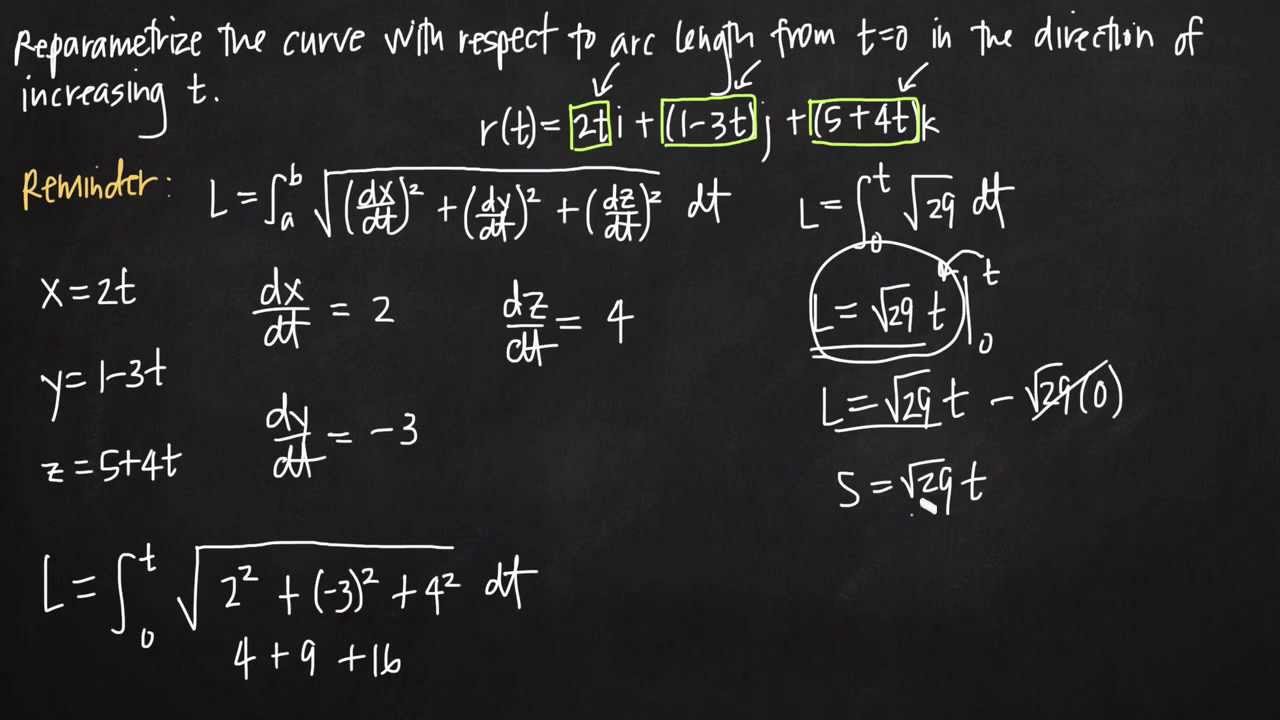 Reparametrize the curve with respect to arc length from t=0 in the direction of
increasing t.
r(t) = 2t i + (1-3t) j + (5+4t) k
Reminder: L = ∫_a^b √((dx/dt)² + (dy/dt)² + (dz/dt)²) dt
x = 2t
y = 1-3t
z = 5+4t
dx/dt = 2
dy/dt = -3
dz/dt = 4
L = ∫_0^t √(2² + (-3)² + 4²) dt
4 + 9 + 16
L = ∫_0^t √29 dt
L = √29 t |_0^t
L = √29 t - √29(0)
S = √29 t